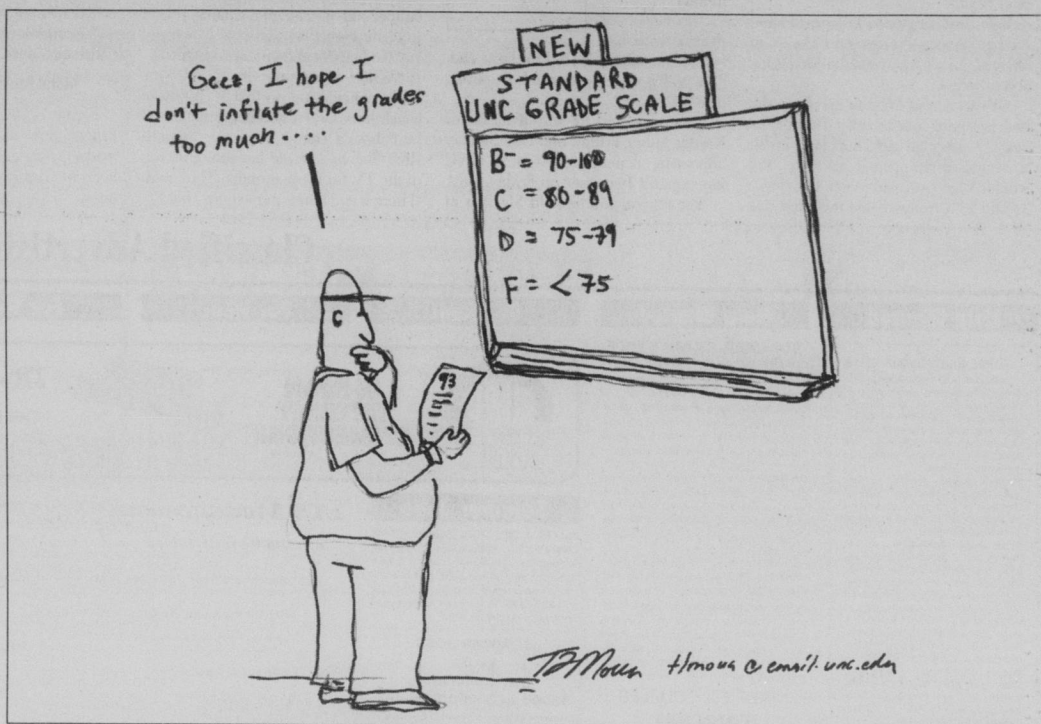 Geez, I hope I
don't inflate the grades
too much....
NEW
STANDARD
UNC GRADE SCALE
B- = 90-100
C = 80-89
D = 75-79
F = < 75
93
@email.unc.edu